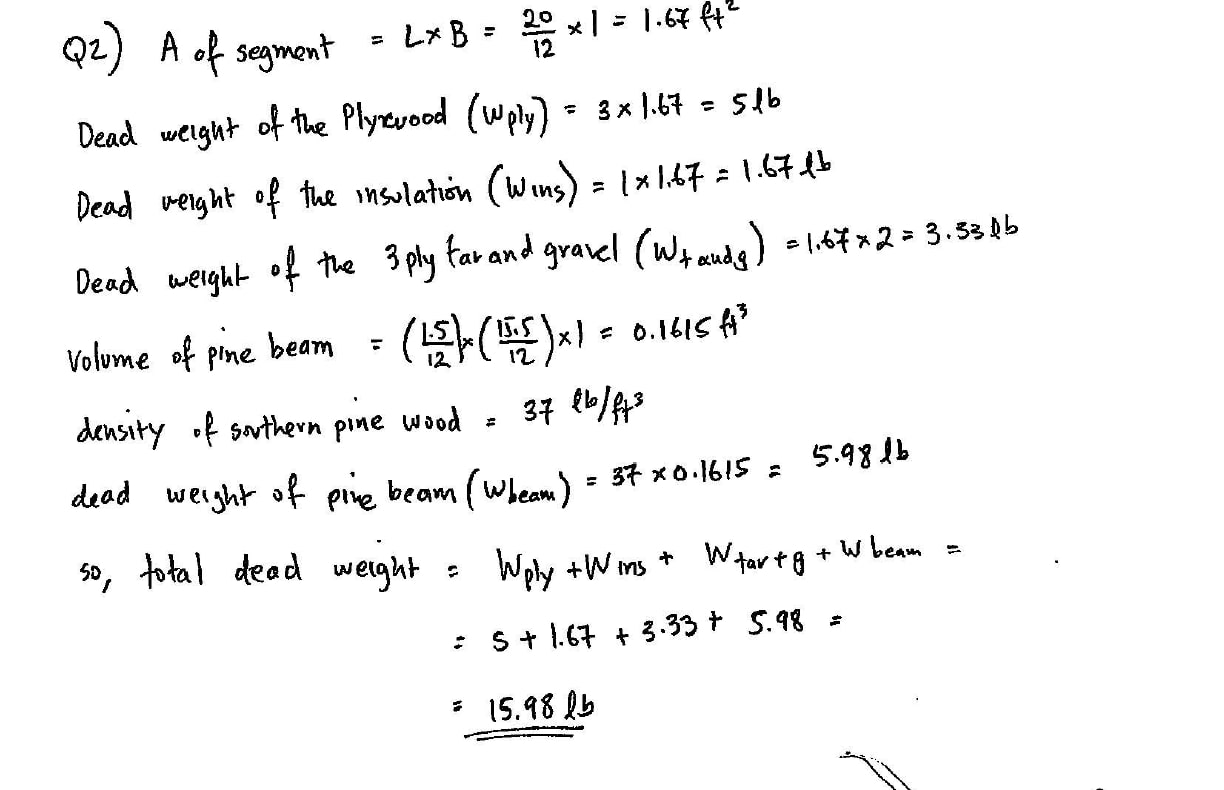 Q2) A of segment = L×B = 20/12 × 1 = 1.67 ft²
Dead weight of the Plywood (Wply) = 3 × 1.67 = 5 lb
Dead weight of the insulation (Wins) = 1 × 1.67 = 1.67 lb
Dead weight of the 3 ply tar and gravel (Wt and g) = 1.67 × 2 = 3.33 lb
Volume of pine beam = (1.5/12) × (15.5/12) × 1 = 0.1615 ft³
density of southern pine wood = 37 lb/ft³
dead weight of pine beam (Wbeam) = 37 × 0.1615 = 5.98 lb
so, total dead weight = Wply + Wins + Wtar+g + Wbeam =
= 5 + 1.67 + 3.33 + 5.98 =
= 15.98 lb